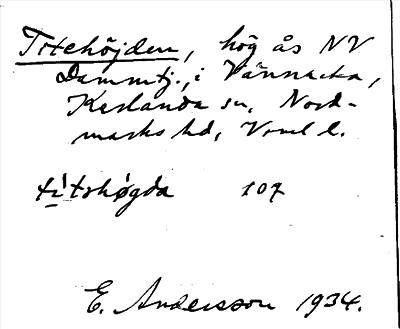 Titehöjden, hög ås NV
Dammtj., i Vännacka,
Karlanda sn, Nord-
marks hd, Vrml l.
tı̍tshø̍gda 107
E. Andersson 1934.